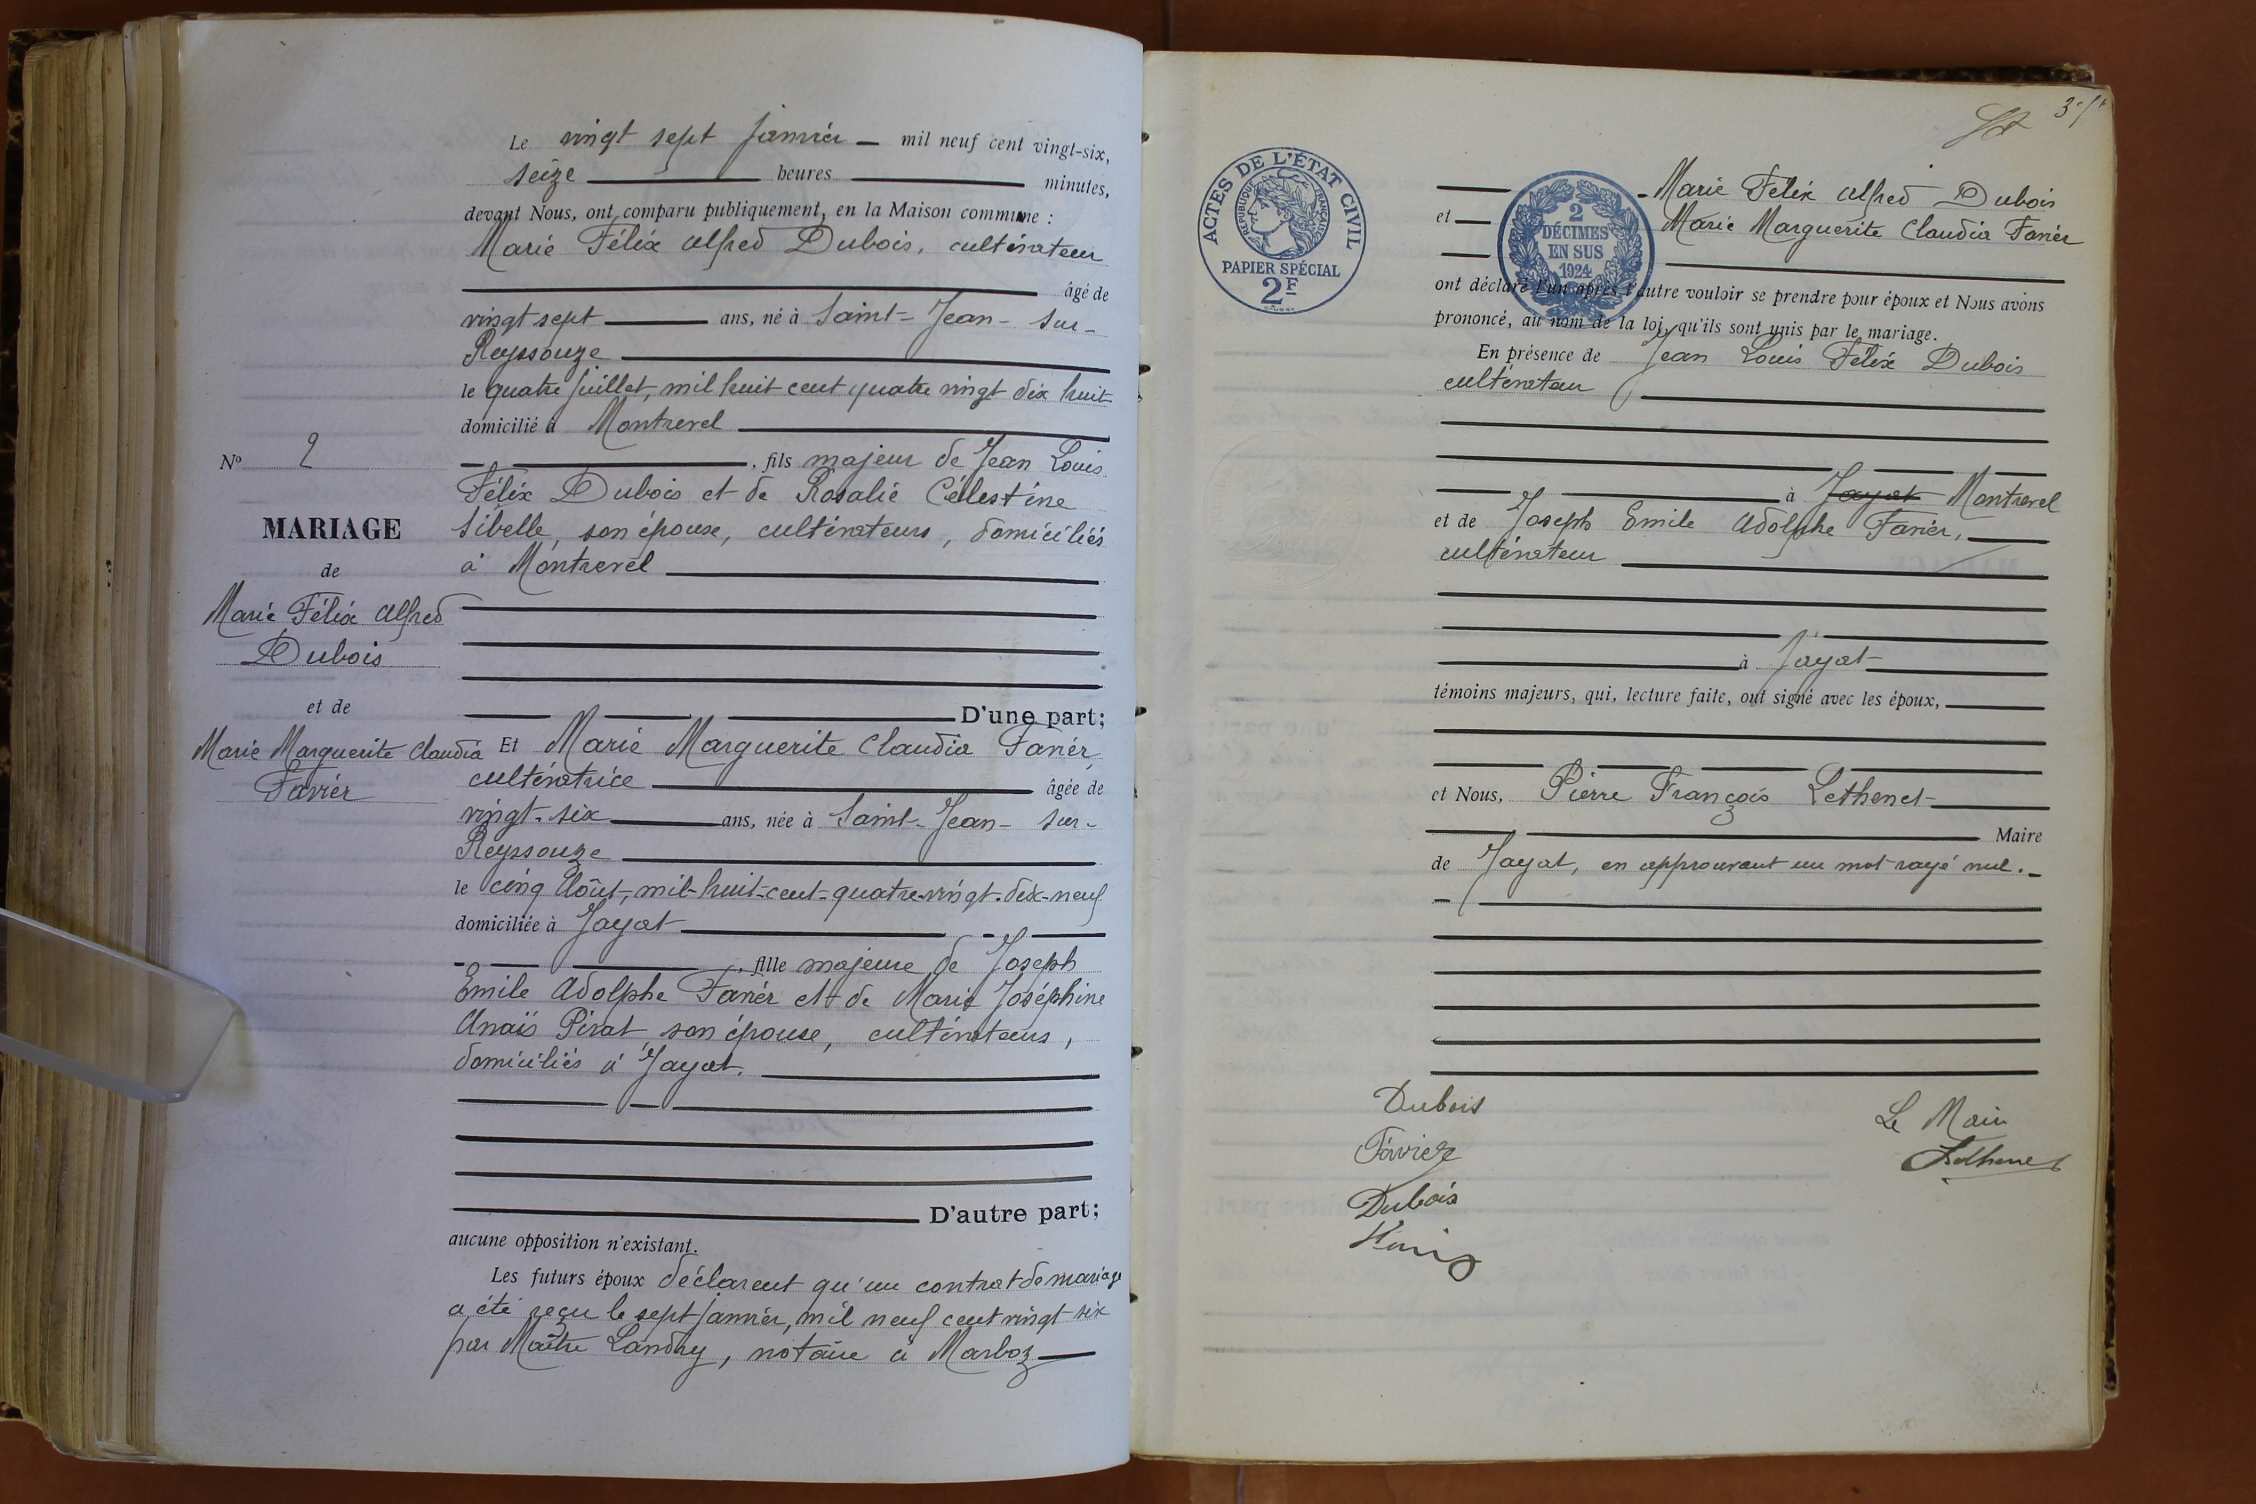 Le vingt sept Janvier mil neuf cent vingt-six,
seize heures minutes,
devant Nous, ont comparu publiquement, en la Maison commune :
Marie Félix Alfred Dubois, cultivateur
âgé de
vingt sept ans, né à Saint-Jean-sur-
Reyssouze
le quatre Juillet, mil huit cent quatre vingt dix huit
domicilié à Montrevel
, fils majeur de Jean Louis
Félix Dubois et de Rosalie Célestine
Sibelle, son épouse, cultivateurs, domiciliés
à Montrevel
D'une part;
Nº 2
MARIAGE
de
Marie Félix Alfred
Dubois
et de
Marie Marguerite Claudia
Favier
Et Marie Marguerite Claudia Favier,
cultivatrice âgée de
vingt-six ans, née à Saint-Jean-sur-
Reyssouze
le cinq Août, mil-huit-cent-quatre-vingt-dix-neuf
domiciliée à Jayat
, fille majeure de Joseph
Emile Adolphe Favier et de Marie Joséphine
Anaïs Pirat son épouse, cultivateurs,
domiciliés à Jayat.
D'autre part;
aucune opposition n'existant.
Les futurs époux déclarent qu'un contrat de mariage
a été reçu le sept Janvier, mil neuf cent vingt-six
par Maître Landry, notaire à Marboz
ACTES DE L'ÉTAT CIVIL
RÉPUBLIQUE FRANÇAISE
PAPIER SPÉCIAL
2F
2
DÉCIMES
EN SUS
1924
Marie Félix Alfred Dubois
et Marie Marguerite Claudia Favier
ont déclaré l'un après l'autre vouloir se prendre pour époux et Nous avons
prononcé, au nom de la loi, qu'ils sont unis par le mariage.
En présence de Jean Louis Félix Dubois
cultivateur
à Jayat Montrevel
et de Joseph Emile Adolphe Favier,
cultivateur
à Jayat
témoins majeurs, qui, lecture faite, ont signé avec les époux,
et Nous, Pierre François Lethenet
Maire
de Jayat, en approuvant un mot rayé nul.
Dubois
Favier
Dubois
Le Maire
Lethenet